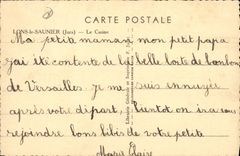 CARTE POSTALE
LONS-le-SAUNIER (Jura) — Le Casino
Ma petite maman mon petit papa
j'ai été contente de la belle boite de bonbons
de Versailles. Je me suis ennuyer
après votre départ. Bientôt on ira vous
rejoindre bons bibis de votre petite
Marie Claire